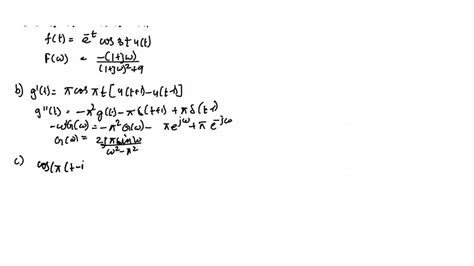 f(t) = e^-t cos 3t u(t)
F(ω) = -(1+jω) / (1+jω)²+9
b) g'(t) = π cos πt [u(t+1) - u(t-1)]
g''(t) = -π² g(t) - π δ(t+1) + π δ(t-1)
-ω²G(ω) = -π² G(ω) - π e^jω + π e^-jω
G(ω) = 2jπ sin ω / ω² - π²
c) cos(π(t-1